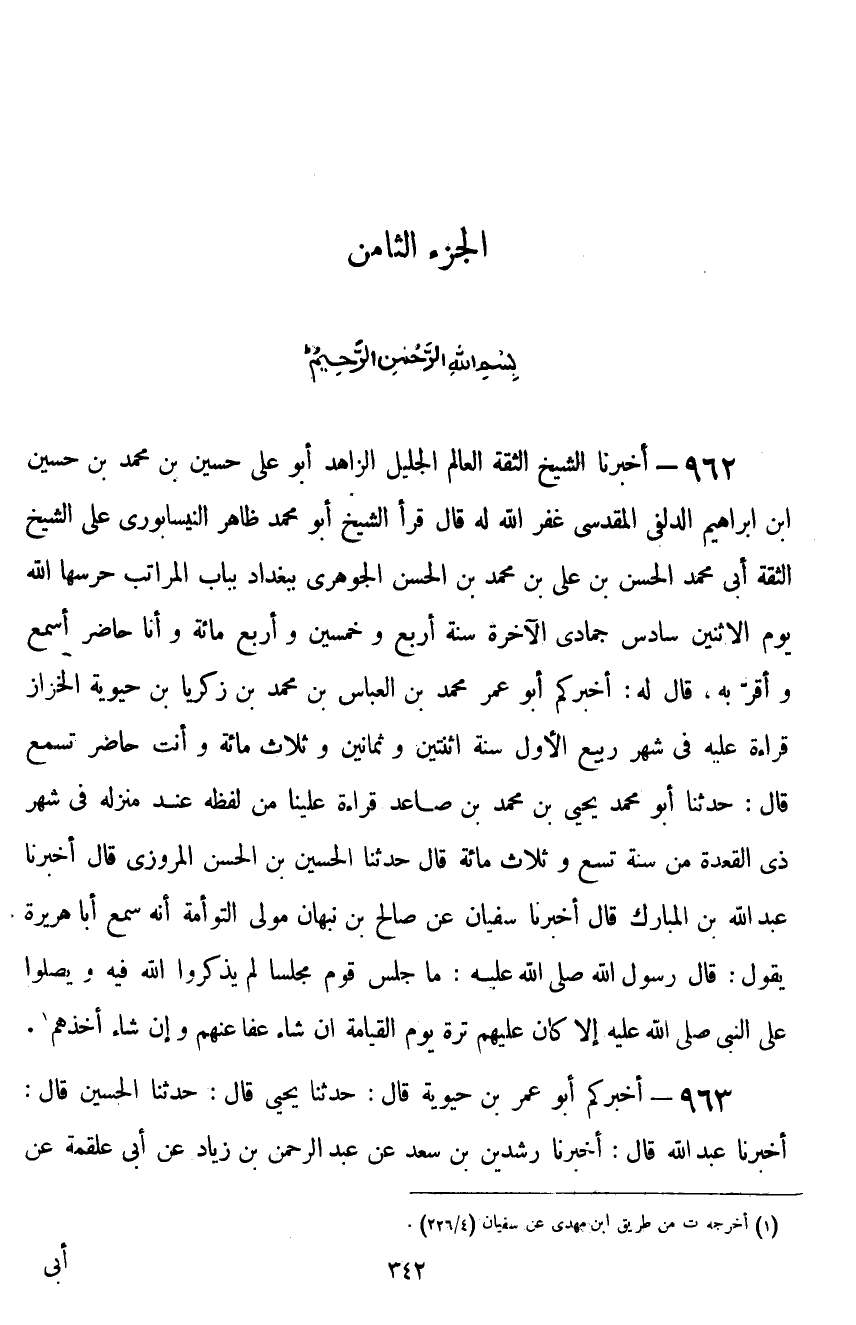 الجزء الثامن
بسم الله الرحمن الرحيم
٩٦٢ – أخبرنا الشيخ الثقة العالم الجليل الزاهد أبو على حسين بن محمد بن حسين
ابن ابراهيم الدلفى المقدسى غفر الله له قال قرأ الشيخ أبو محمد ظاهر النيسابورى على الشيخ
الثقة أبى محمد الحسن بن على بن محمد بن الحسن الجوهرى ببغداد بباب المراتب حرسها الله
يوم الاثنين سادس جمادى الآخرة سنة أربع و خمسين و أربع مائة و أنا حاضر أسمع
و أقرّ به ، قال له : أخبركم أبو عمر محمد بن العباس بن محمد بن زكريا بن حيوية الخزاز
قراءة عليه فى شهر ربيع الأول سنة اثنتين و ثمانين و ثلاث مائة و أنت حاضر تسمع
قال : حدثنا أبو محمد يحيى بن محمد بن صاعد قراءة علينا من لفظه عند منزله فى شهر
ذى القعدة من سنة تسع و ثلاث مائة قال حدثنا الحسين بن الحسن المروزى قال أخبرنا
عبد الله بن المبارك قال أخبرنا سفيان عن صالح بن نبهان مولى التوأمة أنه سمع أبا هريرة
يقول : قال رسول الله صلى الله عليه : ما جلس قوم مجلسا لم يذكروا الله فيه و يصلوا
على النبى صلى الله عليه إلا كان عليهم ترة يوم القيامة ان شاء عفا عنهم و إن شاء أخذهم¹ .
٩٦٣ – أخبركم أبو عمر بن حيوية قال : حدثنا يحيى قال : حدثنا الحسين قال :
أخبرنا عبد الله قال : أخبرنا رشدين بن سعد عن عبد الرحمن بن زياد عن أبى علقمة عن
(١) أخرجه ت من طريق ابن مهدى عن سفيان (٢٢٦/٤) .
٣٤٢
أبى